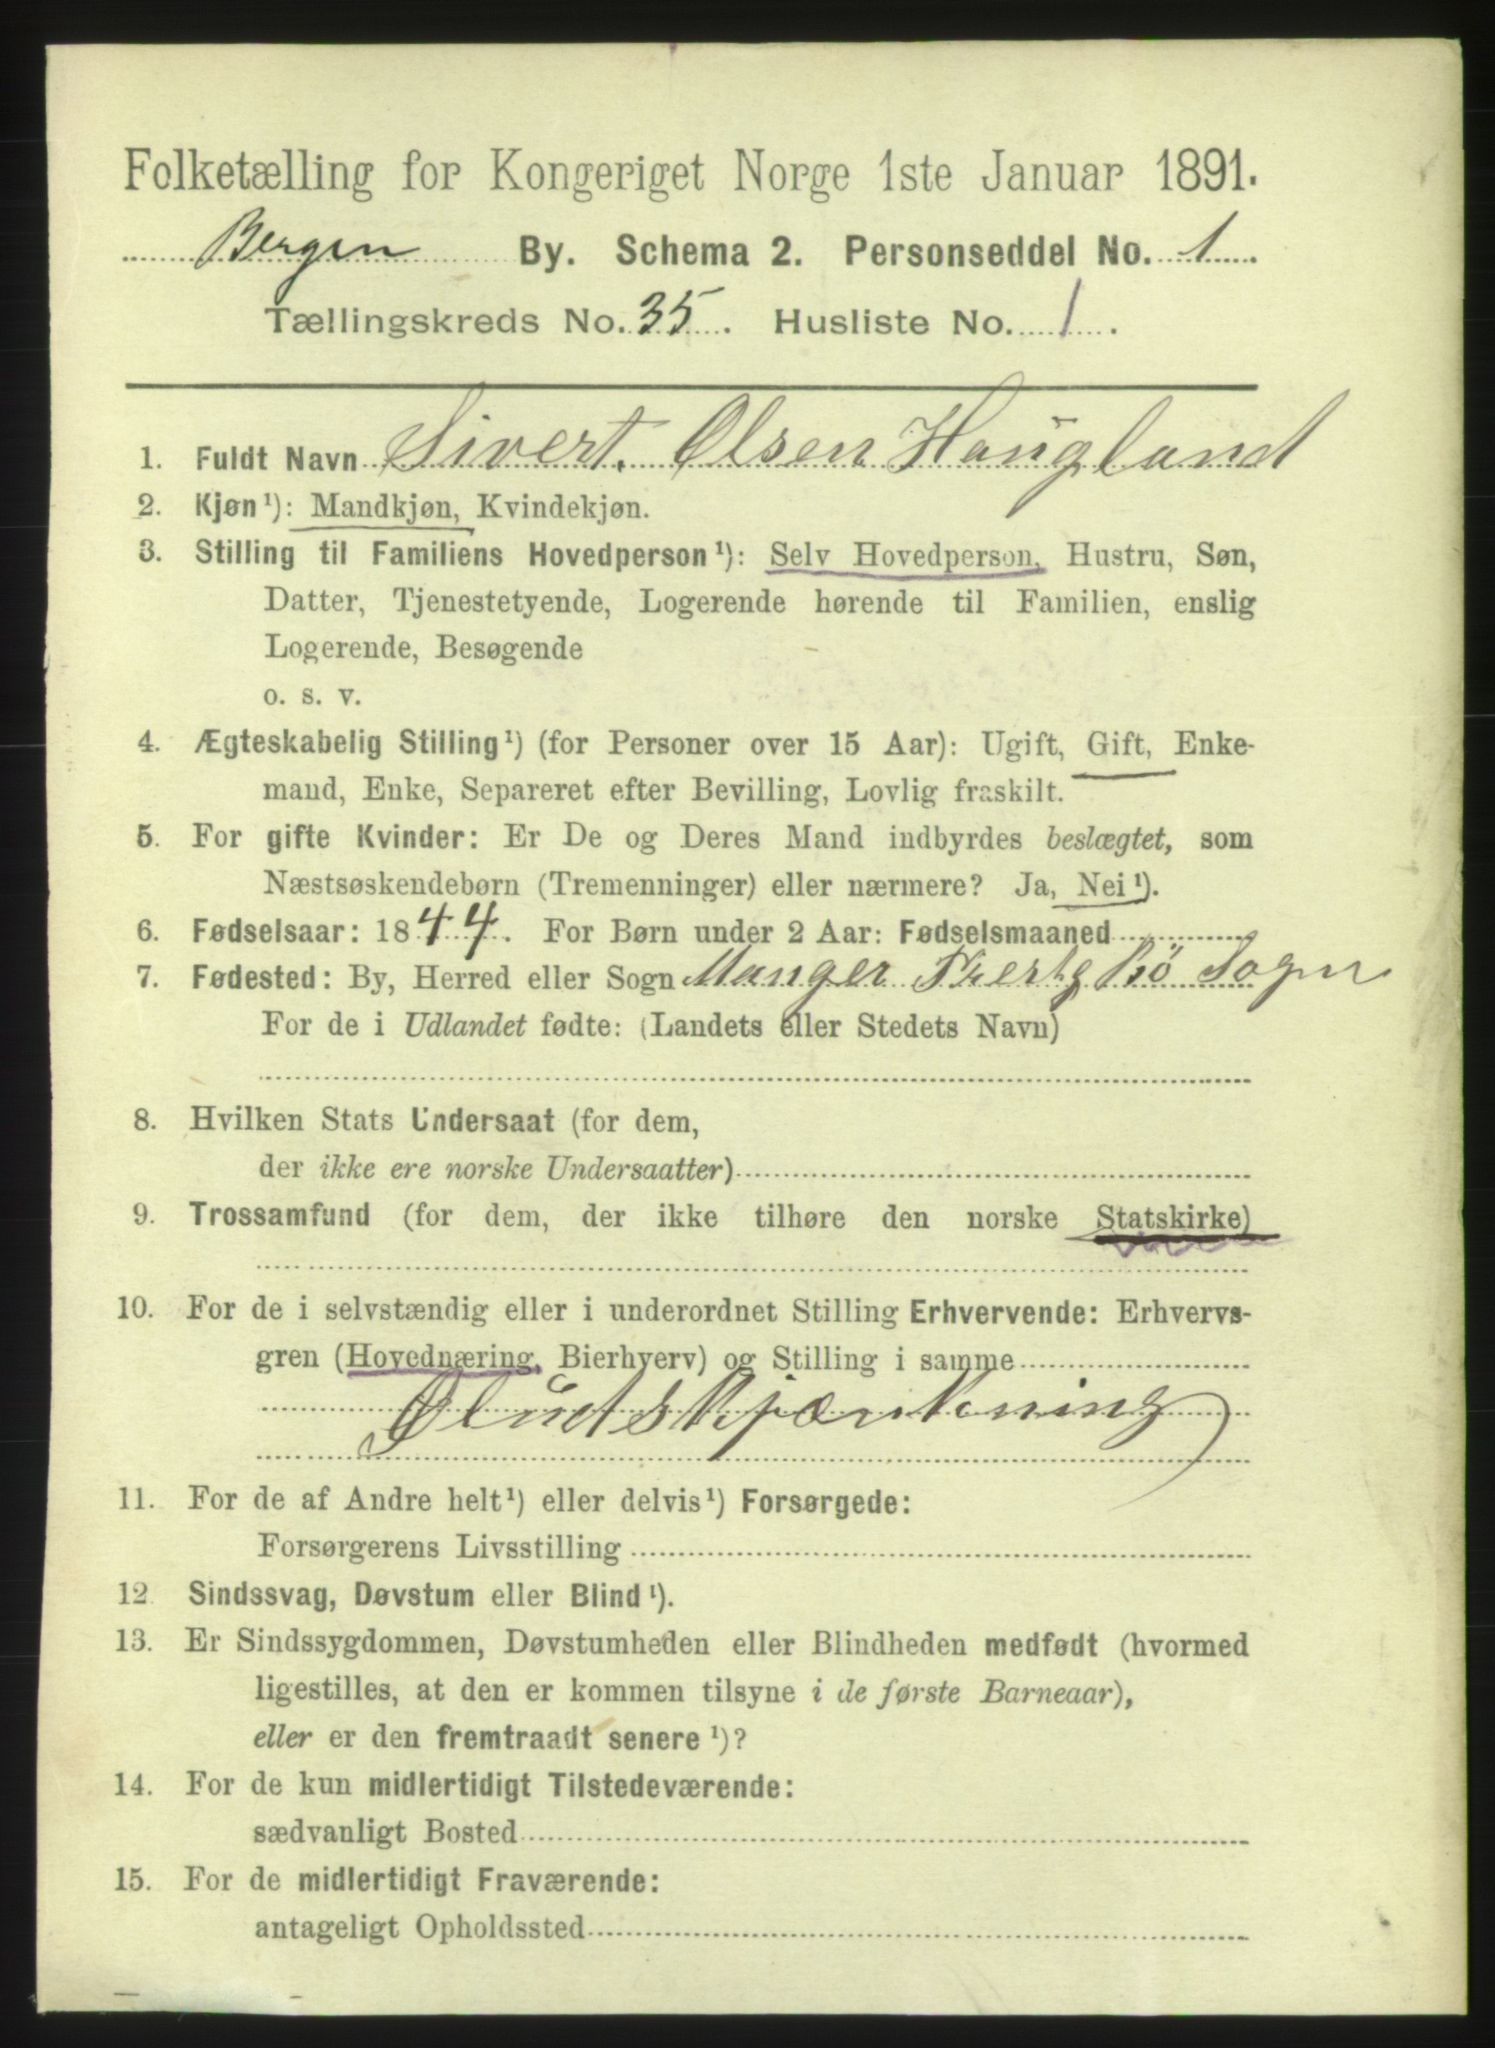 Folketælling for Kongeriget Norge 1ste Januar 1891.
Bergen By. Schema 2. Personseddel No. 1.
Tællingskreds No. 35. Husliste No. 1.
1. Fuldt Navn Sivert. Olsen Haugland
2. Kjøn¹): Mandkjøn, Kvindekjøn.
3. Stilling til Familiens Hovedperson¹): Selv Hovedperson, Hustru, Søn,
Datter, Tjenestetyende, Logerende hørende til Familien, enslig
Logerende, Besøgende
o. s. v.
4. Ægteskabelig Stilling¹) (for Personer over 15 Aar): Ugift, Gift, Enke-
mand, Enke, Separeret efter Bevilling, Lovlig fraskilt.
5. For gifte Kvinder: Er De og Deres Mand indbyrdes beslægtet, som
Næstsøskendebørn (Tremenninger) eller nærmere? Ja, Nei¹).
6. Fødselsaar: 1844. For Børn under 2 Aar: Fødselsmaaned
7. Fødested: By, Herred eller Sogn Manger Bø Sogn
For de i Udlandet fødte: (Landets eller Stedets Navn)
8. Hvilken Stats Undersaat (for dem,
der ikke ere norske Undersaatter)
9. Trossamfund (for dem, der ikke tilhøre den norske Statskirke)
10. For de i selvstændig eller i underordnet Stilling Erhvervende: Erhvervs-
gren (Hovednæring, Bierhverv) og Stilling i samme
Øludskjænkning
11. For de af Andre helt¹) eller delvis¹) Forsørgede:
Forsørgerens Livsstilling
12. Sindssvag, Døvstum eller Blind¹).
13. Er Sindssygdommen, Døvstumheden eller Blindheden medfødt (hvormed
ligestilles, at den er kommen tilsyne i de første Barneaar),
eller er den fremtraadt senere¹)?
14. For de kun midlertidigt Tilstedeværende:
sædvanligt Bosted
15. For de midlertidigt Fraværende:
antageligt Opholdssted